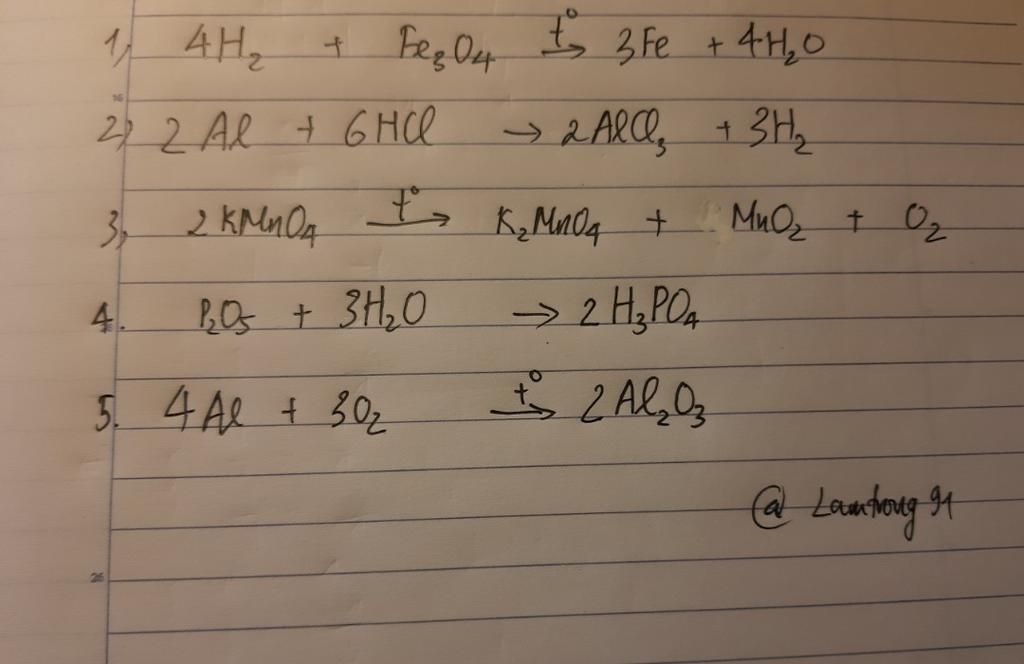 1, 4H₂ + Fe₃O₄ t°→ 3Fe + 4H₂O
2) 2Al + 6HCl → 2AlCl₃ + 3H₂
3, 2KMnO₄ t°→ K₂MnO₄ + MnO₂ + O₂
4. P₂O₅ + 3H₂O → 2H₃PO₄
5. 4Al + 3O₂ t°→ 2Al₂O₃
@ Lamtrong 91
26